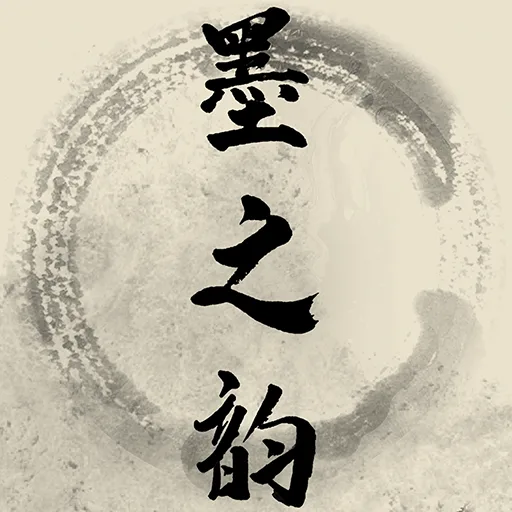 墨之韵